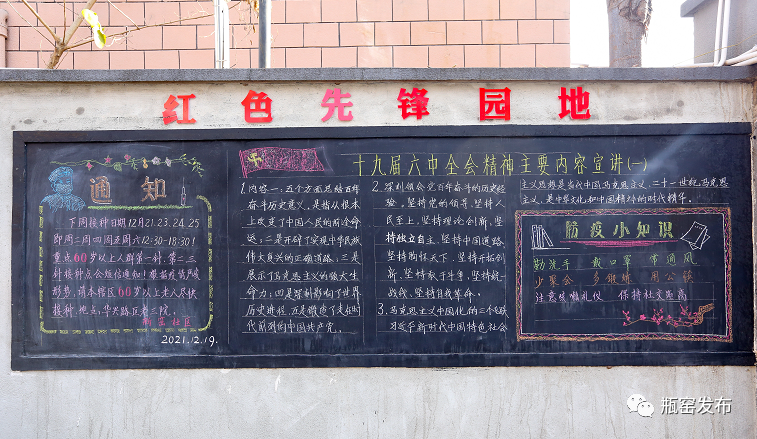 红色先锋园地
通知
下周接种日期12月21.23.24.25
即周二周四周五周六12:30-18:30!
重点60岁以上人群第一针.第二三
针接种点会短信通知!
形势,请本辖区60岁以上老人尽快
接种.地点:华兴路
社区
2021.12.19.
十九届六中全会精神主要内容宣讲(一)
1.内容一:五个方面总结百年
奋斗历史意义,是指从根本
上改变了中国人民的前途命
运;二是开辟了实现中华民族
伟大复兴的正确道路;三是
展示了马克思主义的强大生
命力;四是深刻影响了世界
历史进程,五是锻造了走在时
代前列的中国共产党。
2.深刻领会党百年奋斗的历史经
验。坚持党的领导.坚持人
民至上.坚持理论创新.坚
持独立自主.坚持中国道路.
坚持胸怀天下.坚持开拓创
新.坚持敢于斗争.坚持统一
战线.坚持自我革命。
3.马克思主义中国化的三个飞跃
习近平新时代中国特色社会
主义思想是当代中国马克思主义.二十一世纪马克思
主义.是中华文化和中国精神的时代精华。
防疫小知识
勤洗手 戴口罩 常通风
少聚会 多锻炼 用公筷
注意咳嗽礼仪 保持社交距离
瓶窑发布